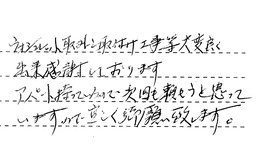 ウォシュレット取外し取付け工事等大変良く
出来感謝しております
アパート持っているので次回も頼もうと思って
いますので宜しく御願い致します。